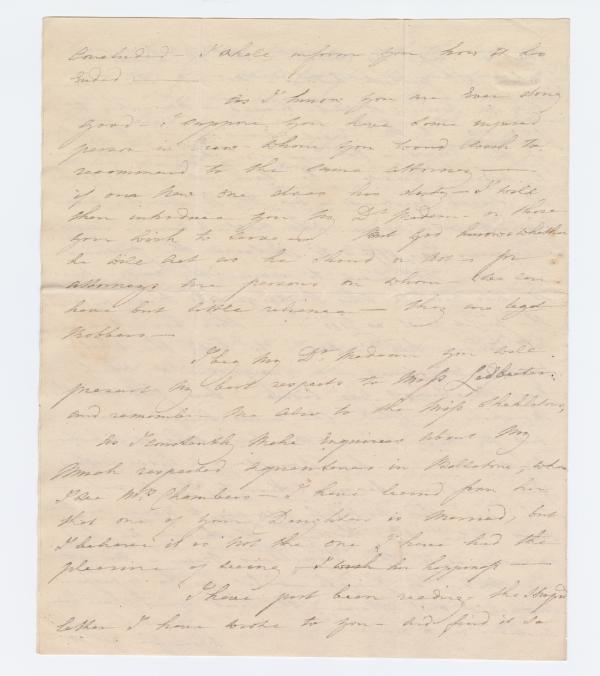 concluded – I shall inform you how it has
Ended –
as I know you are Ever doing
good – I suppose, you have some injured
person in view whom you would wish to
recommend to the same attorney –
if our New one does his duty – I will
then introduce you My Dr Madam or those
you wish to serve – But God knows whether
he will act as he should or not – for
attorneys are persons on whom we can
have but little reliance – they are legal
Robbers –
I beg My Dr Madam you will
present my best respects to Miss Leadbeater
and remember me also to the Miss Shackletons,
As I constantly Make inquiries about My
Much respected acquaintances in Ballitore, when
I see Mrs Chambers – I have learnd from her
that one of your Daughters is Married, but
I believe it is not the one I have had the
pleasure of seeing – I wish her happiness –
I have just been reading the stupid
letter I have wrote to you – and find it so